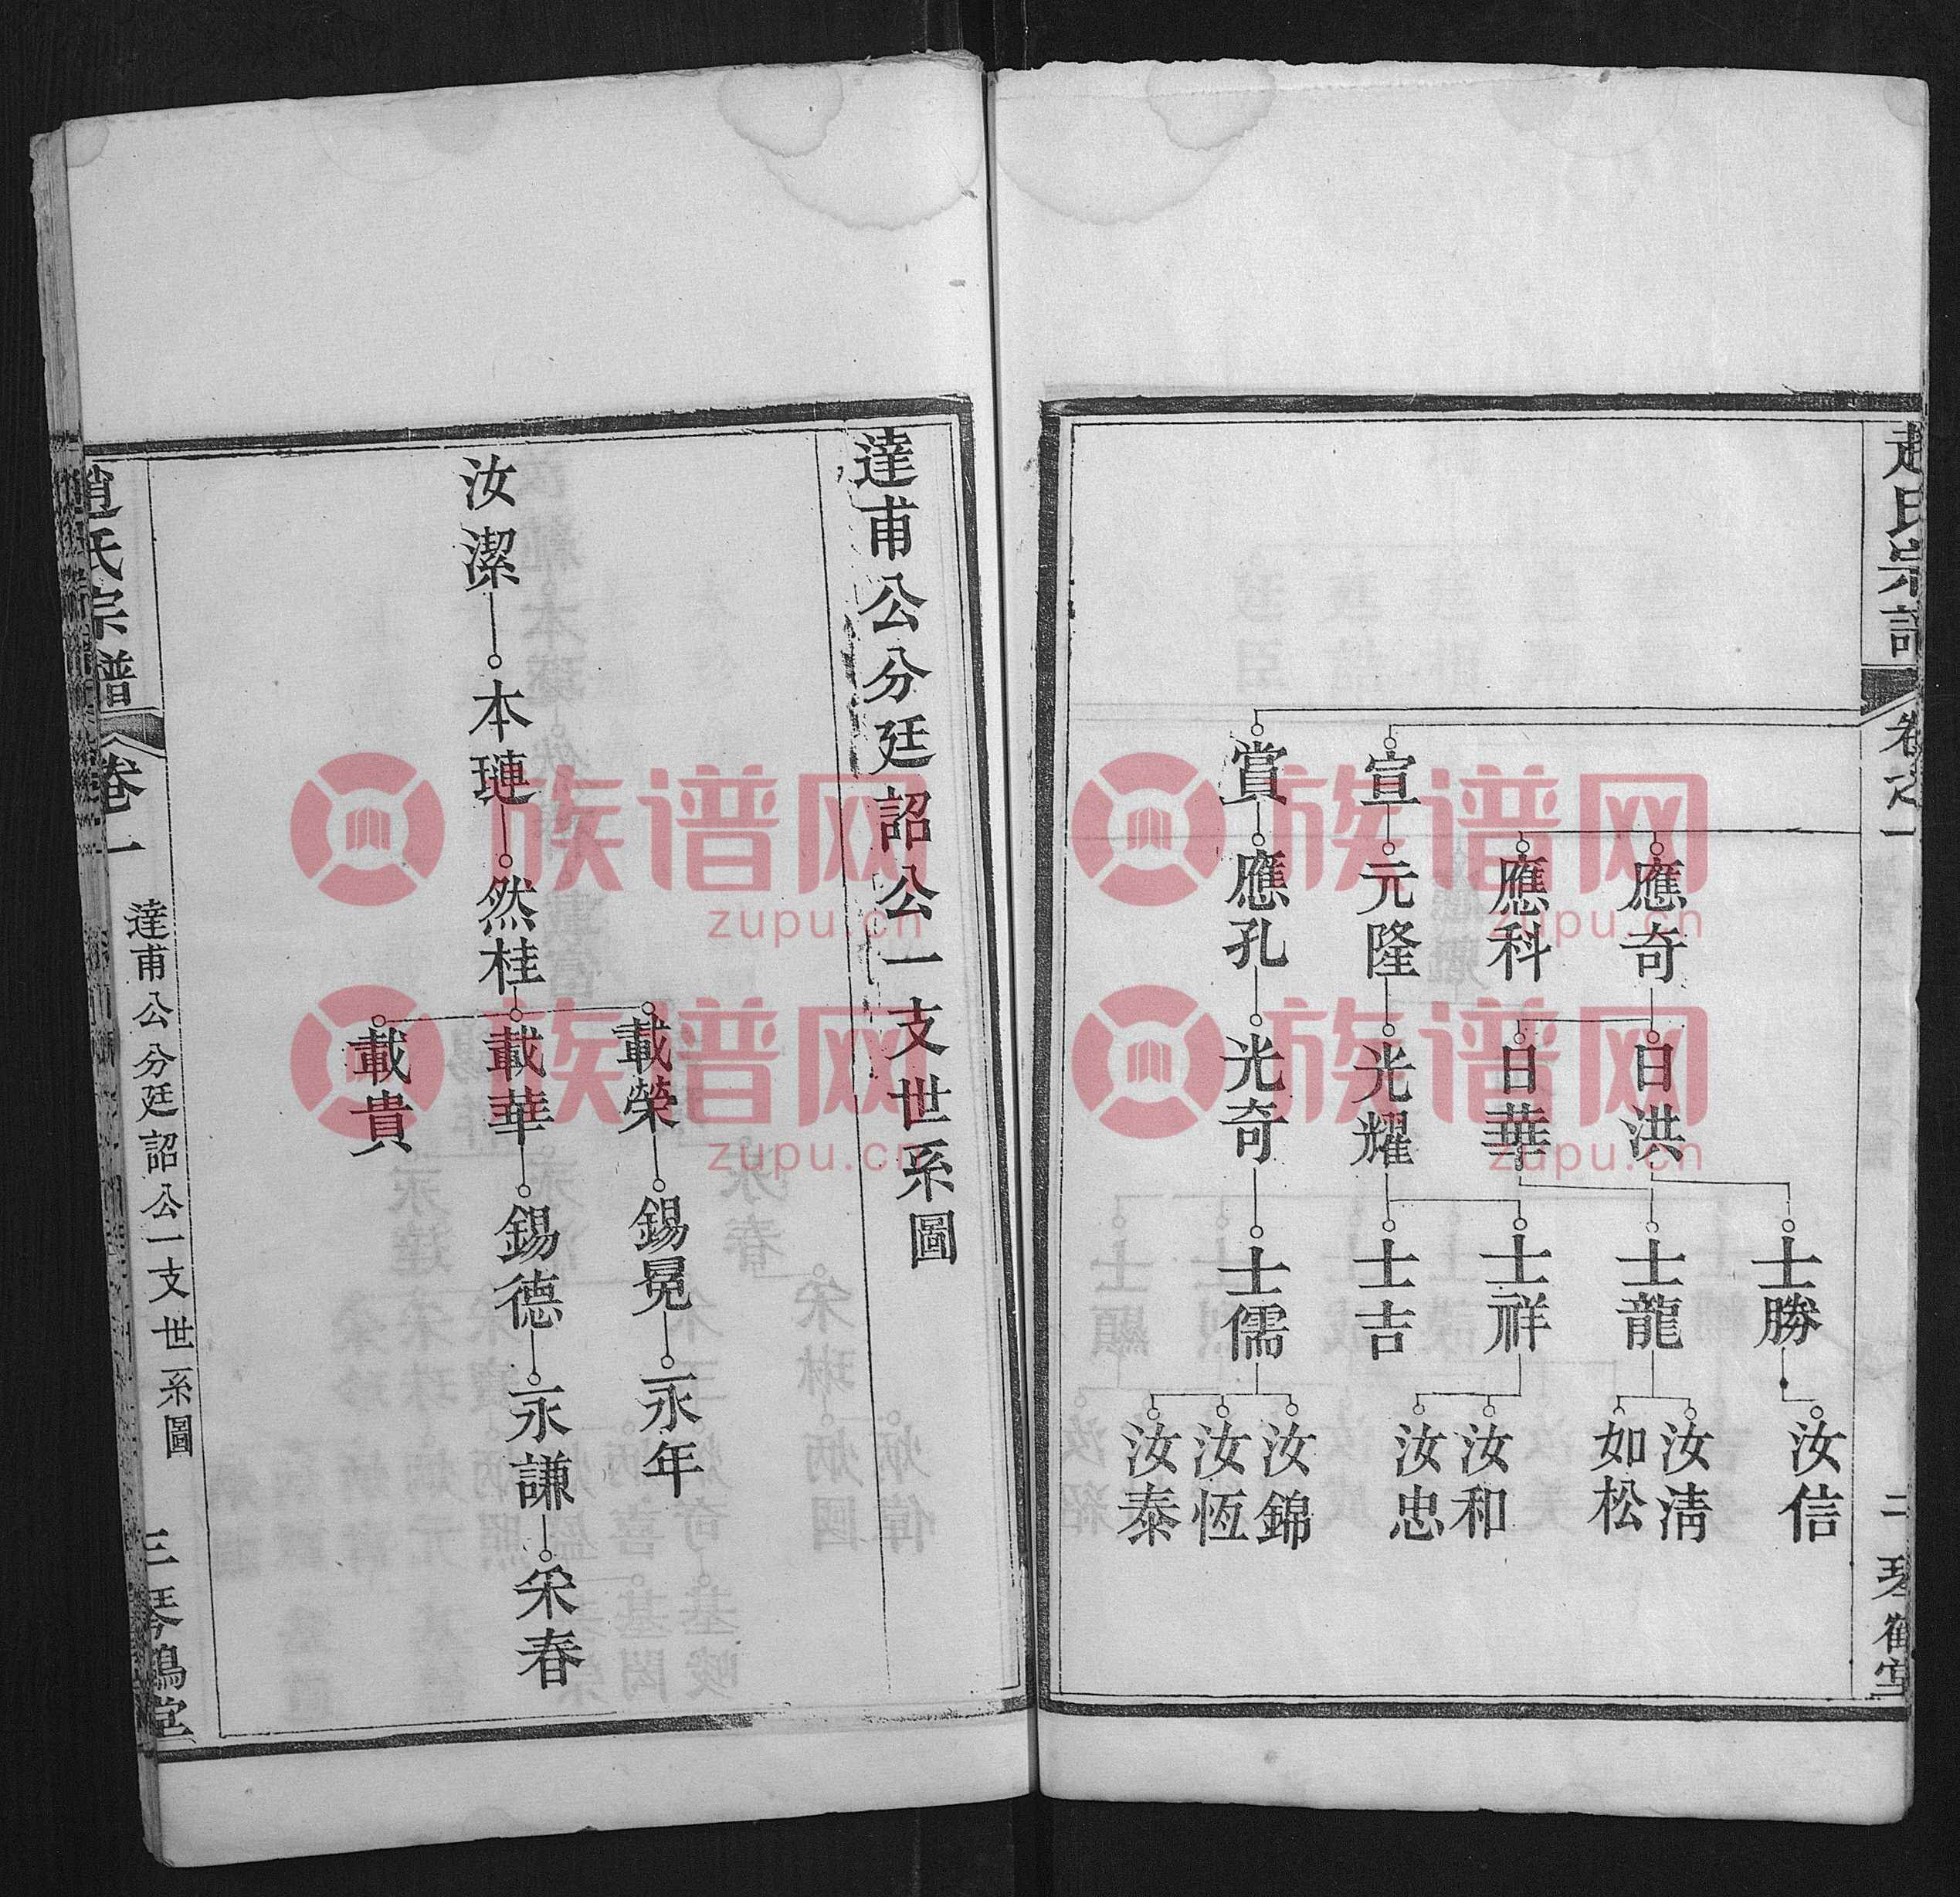 趙氏宗譜
卷之一
二
琴鶴堂
應奇
應科
宣
元隆
賞
應孔
日洪
日華
光耀
光奇
士勝
士龍
士祥
士吉
士儒
汝信
汝清
如松
汝和
汝忠
汝錦
汝恆
汝泰
達甫公分廷詔公一支世系圖
汝潔
本璉
然桂
載榮
載華
載貴
錫冕
錫德
永年
永謙
荣春
趙氏宗譜
卷一
達甫公分廷詔公一支世系圖
三
琴鶴堂
族谱网
zupu.cn
族谱网
zupu.cn
族谱网
zupu.cn
族谱网
zupu.cn